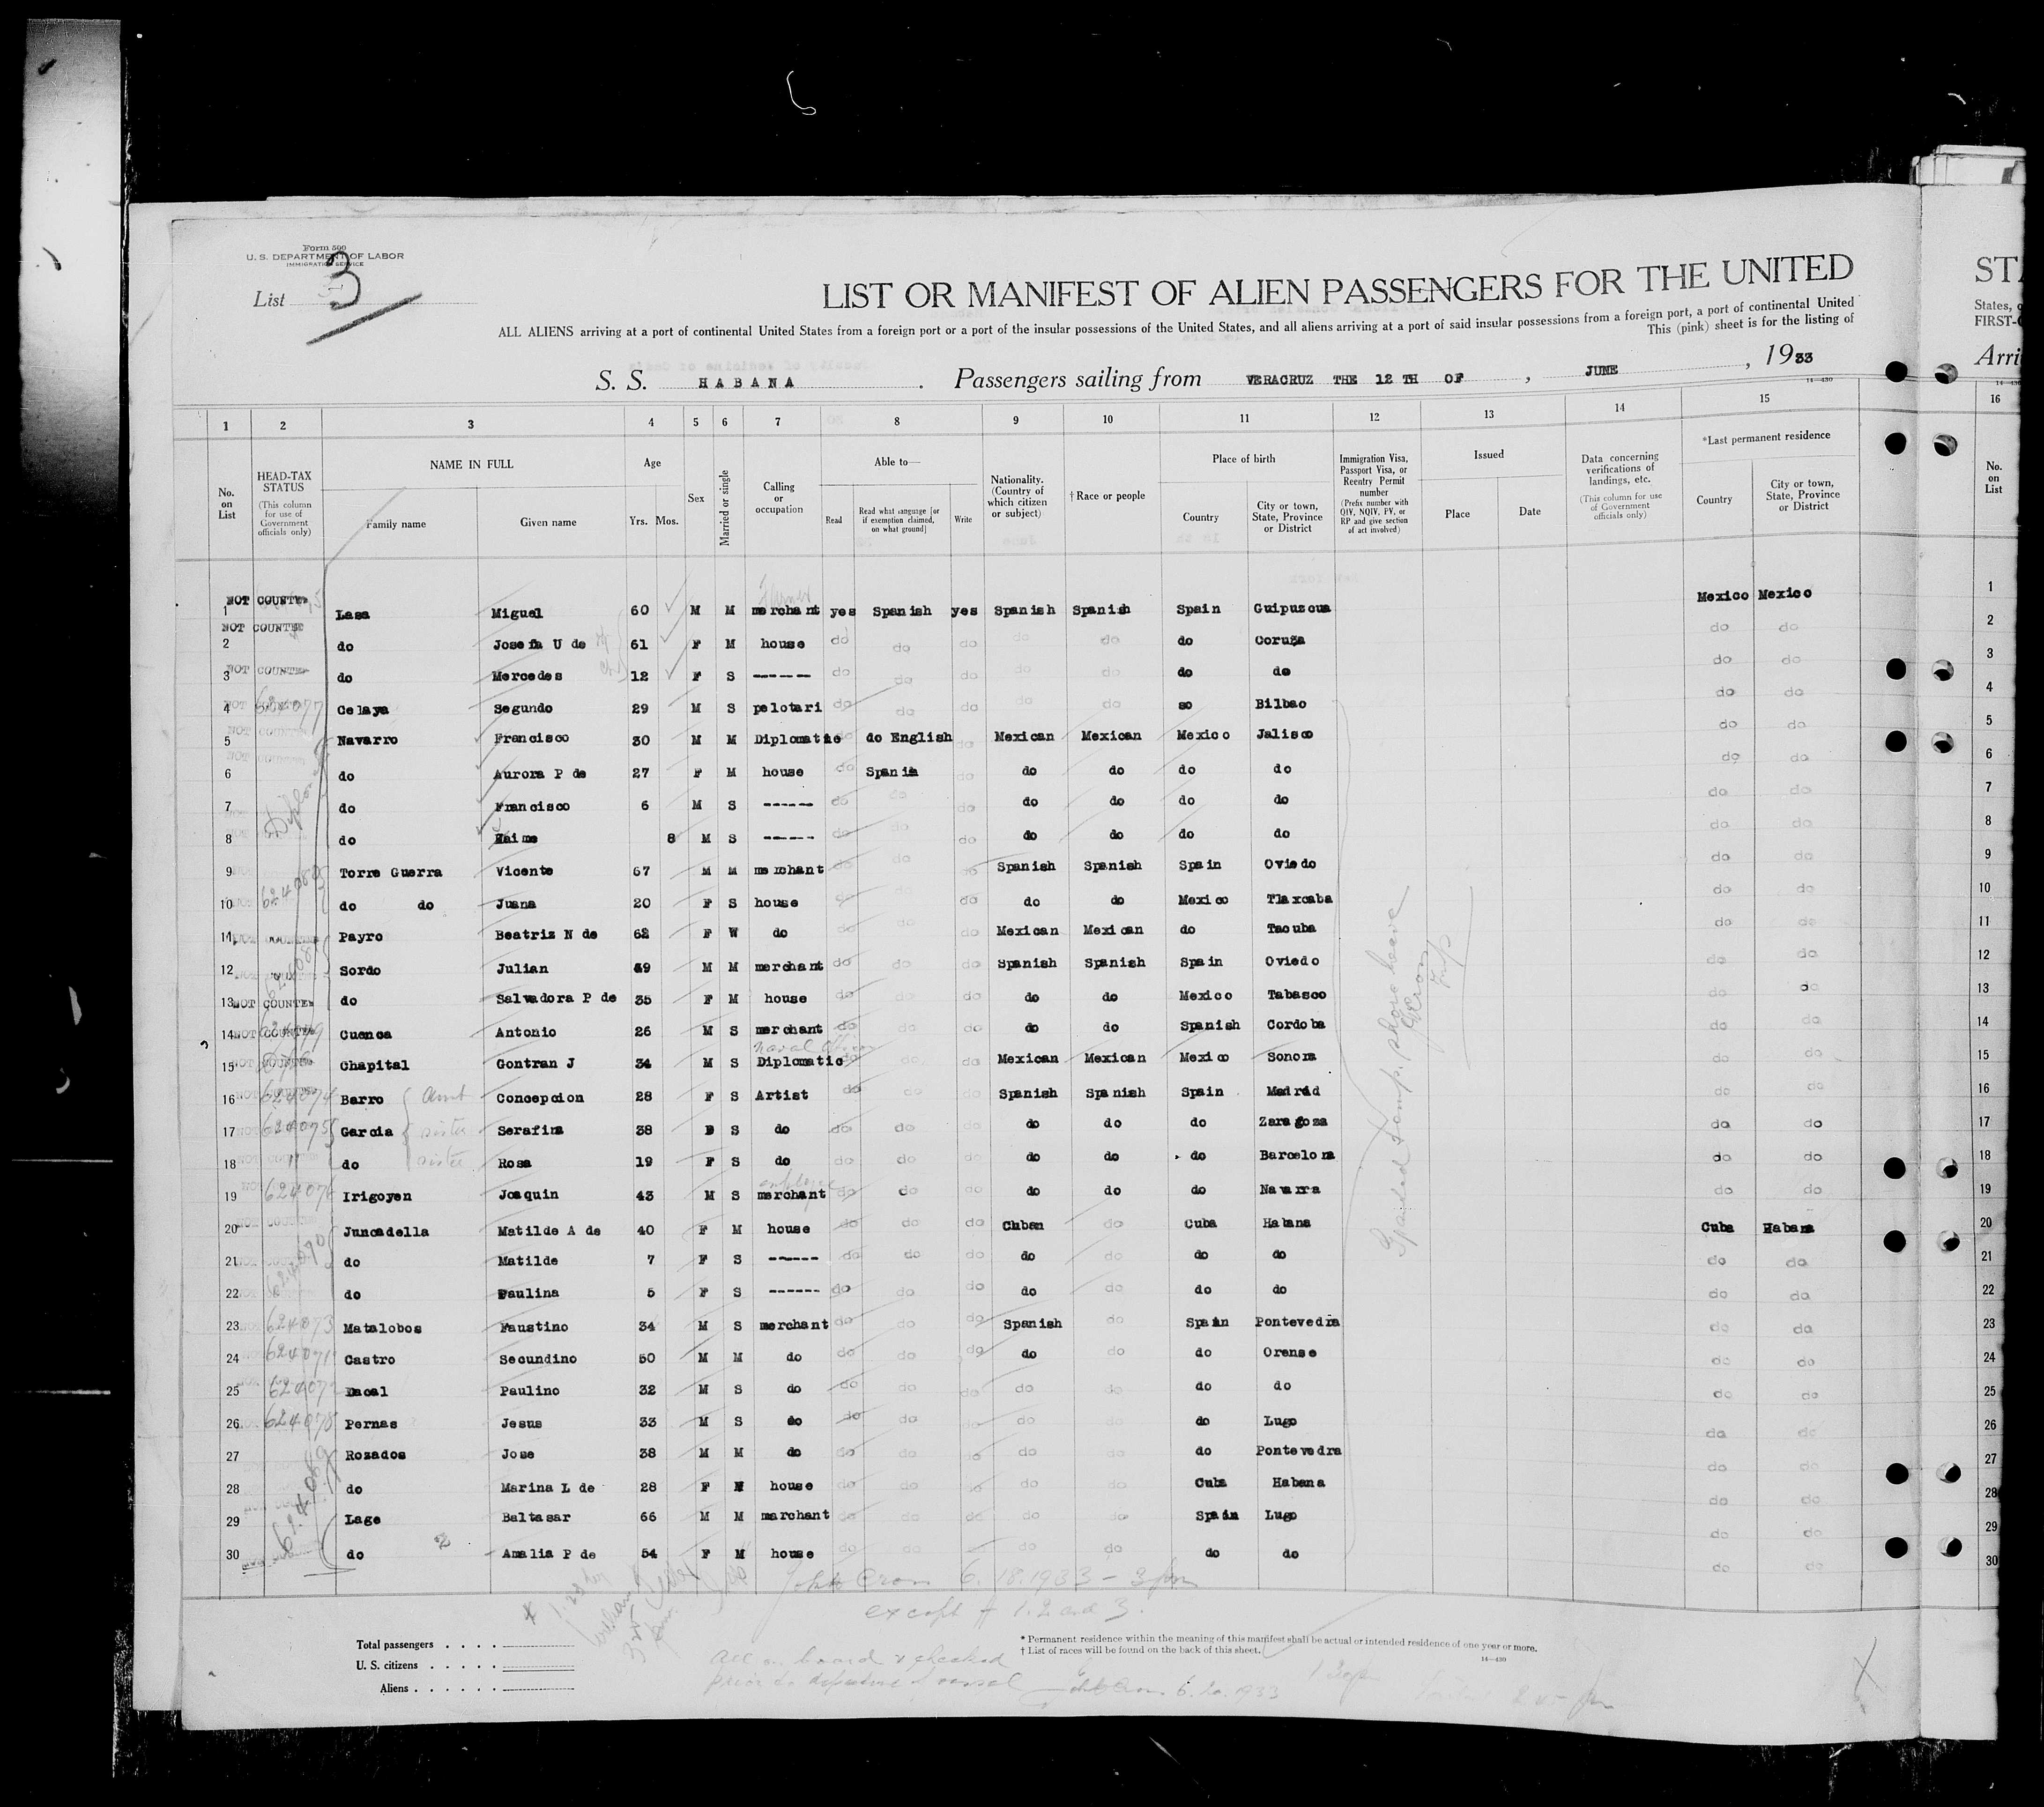 Form 500
U. S. DEPARTMENT OF LABOR
IMMIGRATION SERVICE
List 3
LIST OR MANIFEST OF ALIEN PASSENGERS FOR THE UNITED
ALL ALIENS arriving at a port of continental United States from a foreign port or a port of the insular possessions of the United States, and all aliens arriving at a port of said insular possessions from a foreign port, a port of continental United
This (pink) sheet is for the listing of
S. S. HABANA. Passengers sailing from VERACRUZ THE 12 TH OF, JUNE, 1933
1 2 3 4 5 6 7 8 9 10 11 12 13 14 15
No. on List
HEAD-TAX STATUS (This column for use of Government officials only)
NAME IN FULL
Family name
Given name
Age
Yrs. Mos.
Sex
Married or single
Calling or occupation
Able to—
Read
Read what language [or if exemption claimed, on what ground]
Write
Nationality. (Country of which citizen or subject)
† Race or people
Place of birth
Country
City or town, State, Province or District
Immigration Visa, Passport Visa, or Reentry Permit number (Prefix number with QIV, NQIV, PV, or RP and give section of act involved)
Issued
Place
Date
Data concerning verifications of landings, etc. (This column for use of Government officials only)
*Last permanent residence
Country
City or town, State, Province or District
1 Lasa Miguel 60 M M merchant yes Spanish yes Spanish Spanish Spain Guipuzcua Mexico Mexico
2 do Josefa U de 61 F M house do do do do do do Coruña do do
3 do Mercedes 12 F S ------ do do do do do do do do do
4 624077 Celaya Segundo 29 M S pelotari do do do do do so Bilbao do do
5 Navarro Francisco 30 M M Diplomatic do do English do Mexican Mexican Mexico Jalisco do do
6 do Aurora P de 27 F M house do Spanis do do do do do do do
7 do Francisco 6 M S ------ do do do do do do do do do
8 do Haime 8 M S ------ do do do do do do do do do
9 Torre Guerra Vicente 67 M M merchant do do do Spanish Spanish Spain Oviedo do do
10 do do Juana 20 F S house do do do do Mexico Tlaxcaba do do
11 Payro Beatriz N de 62 F W do do do do Mexican Mexican do Tacuba do do
12 Sordo Julian 49 M M merchant do do do Spanish Spanish Spain Oviedo do do
13 NOT COUNTED do Salvadora P de 35 F M house do do do do do Mexico Tabasco do do
14 Cuenca Antonio 26 M S merchant do do do do do Spanish Cordoba do do
15 Chapital Gontran J 34 M S Diplomatic do do do Mexican Mexican Mexico Sonora do do
16 624074 Barro Aunt Concepcion 28 F S Artist do do do Spanish Spanish Spain Madrid do do
17 624075 Garcia sister Serafina 38 S do do do do do do do Zaragoza do do
18 do sister Rosa 19 F S do do do do do do do Barcelona do do
19 624076 Irigoyen Joaquin 43 M S merchant do do do do do do Navarra do do
20 Juncadella Matilde A de 40 F M house do do do Cuban do Cuba Habana Cuba Habana
21 do Matilde 7 F S ------ do do do do do do do do do
22 do Paulina 5 F S ------ do do do do do do do do do
23 624073 Matalobos Faustino 34 M S merchant do do do Spanish do Spain Pontevedra do do
24 624071 Castro Secundino 50 M M do do do do do do do Orense do do
25 624072 Dacal Paulino 32 M S do do do do do do do do do do
26 624078 Pernas Jesus 33 M S do do do do do do do Lugo do do
27 Rozados Jose 38 M M do do do do do do do Pontevedra do do
28 do Marina L de 28 F M house do do do do do Cuba Habana do do
29 Lage Baltasar 66 M M marchant do do do do do Spain Lugo do do
30 do Amalia P de 54 F M house do do do do do do do do do
6.18.1933 - 3 pm
except # 1.2 and 3.
Total passengers
U. S. citizens
Aliens
* Permanent residence within the meaning of this manifest shall be actual or intended residence of one year or more.
† List of races will be found on the back of this sheet.
14—430
All on board & checked
prior to departure of vessel 6.20.1933
STA
States, o
FIRST-C
Arri
16
No. on List
1
2
3
4
5
6
7
8
9
10
11
12
13
14
15
16
17
18
19
20
21
22
23
24
25
26
27
28
29
30